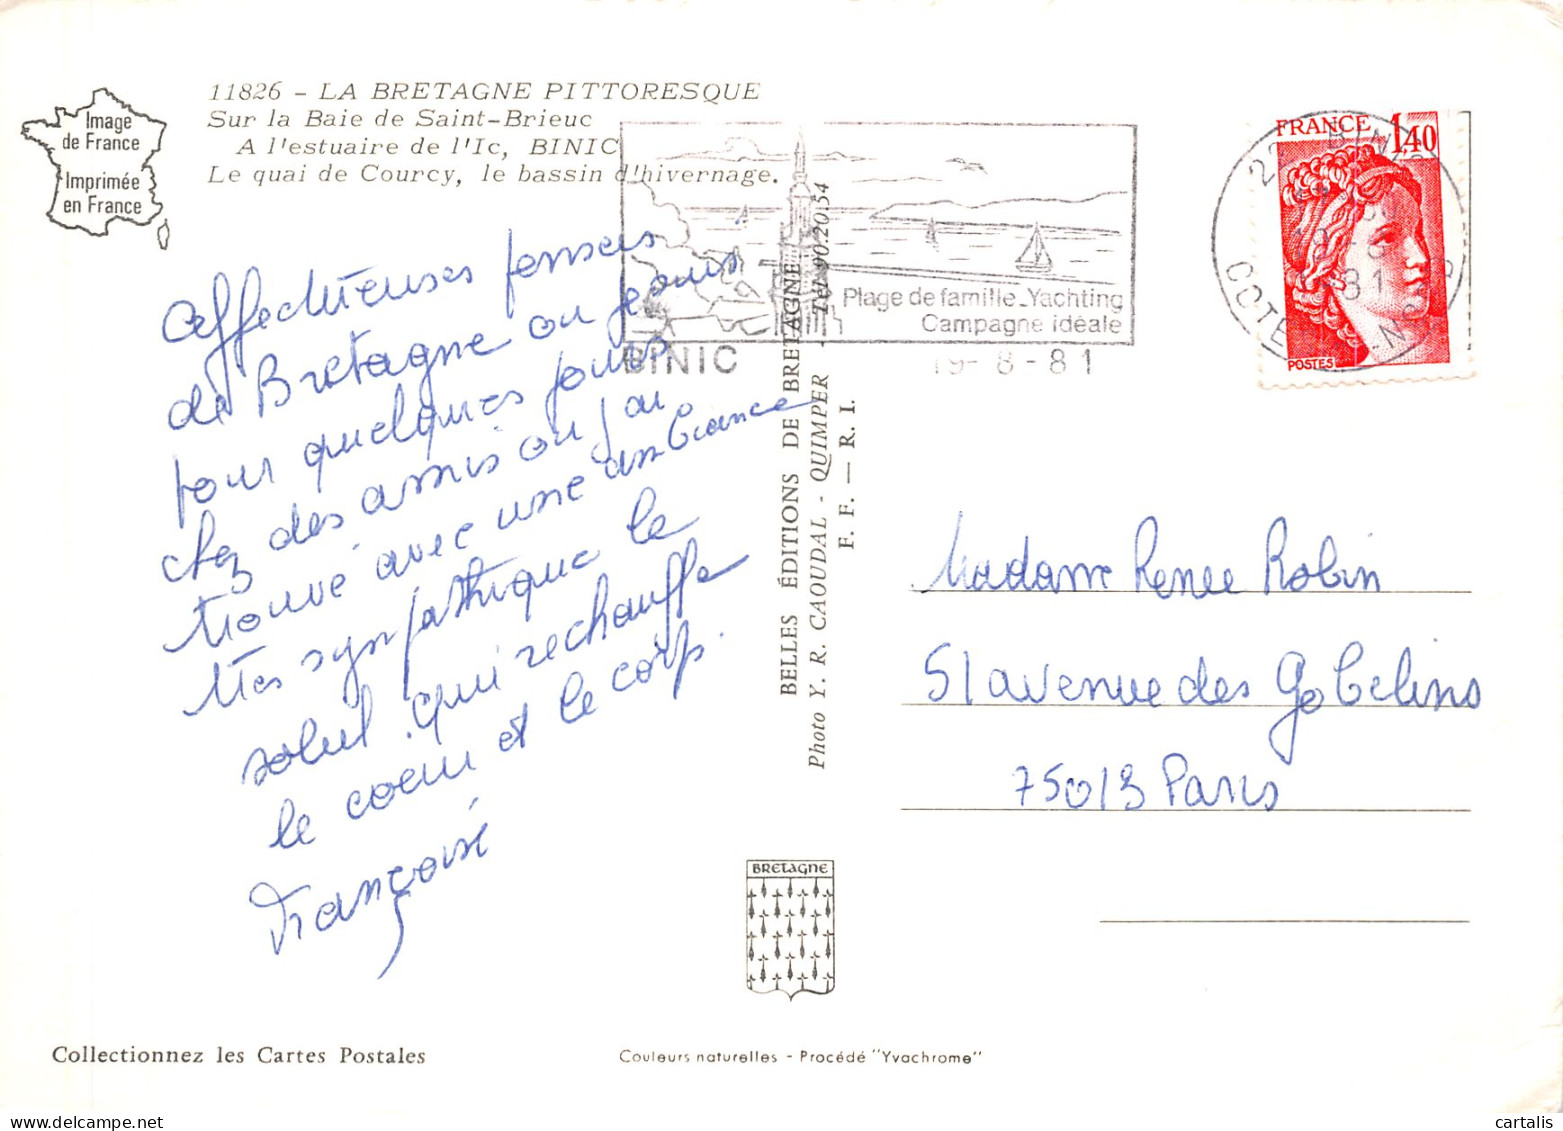 Image
de France
Imprimée
en France
11826 - LA BRETAGNE PITTORESQUE
Sur la Baie de Saint-Brieuc
A l'estuaire de l'Ic, BINIC
Le quai de Courcy, le bassin d'hivernage.
Plage de famille_Yachting
Campagne idéale
BINIC
19-8-81
FRANCE
1,40
POSTES
COTES
Affectueuses pensees
de Bretagne ou je suis
pour quelques jours
chez des amis ou j'ai
trouvé avec une ambiance
tres sympathique le
soleil qui rechauffe
le coeur et le corps.
Françoise
BELLES ÉDITIONS DE BRETAGNE
Photo Y. R. CAOUDAL - QUIMPER - Tél. 90.20.54
F. F. — R. I.
Madame Renee Robin
51 avenue des Gobelins
75013 Paris
BRETAGNE
Collectionnez les Cartes Postales
Couleurs naturelles - Procédé "Yvachrome"
cartalis